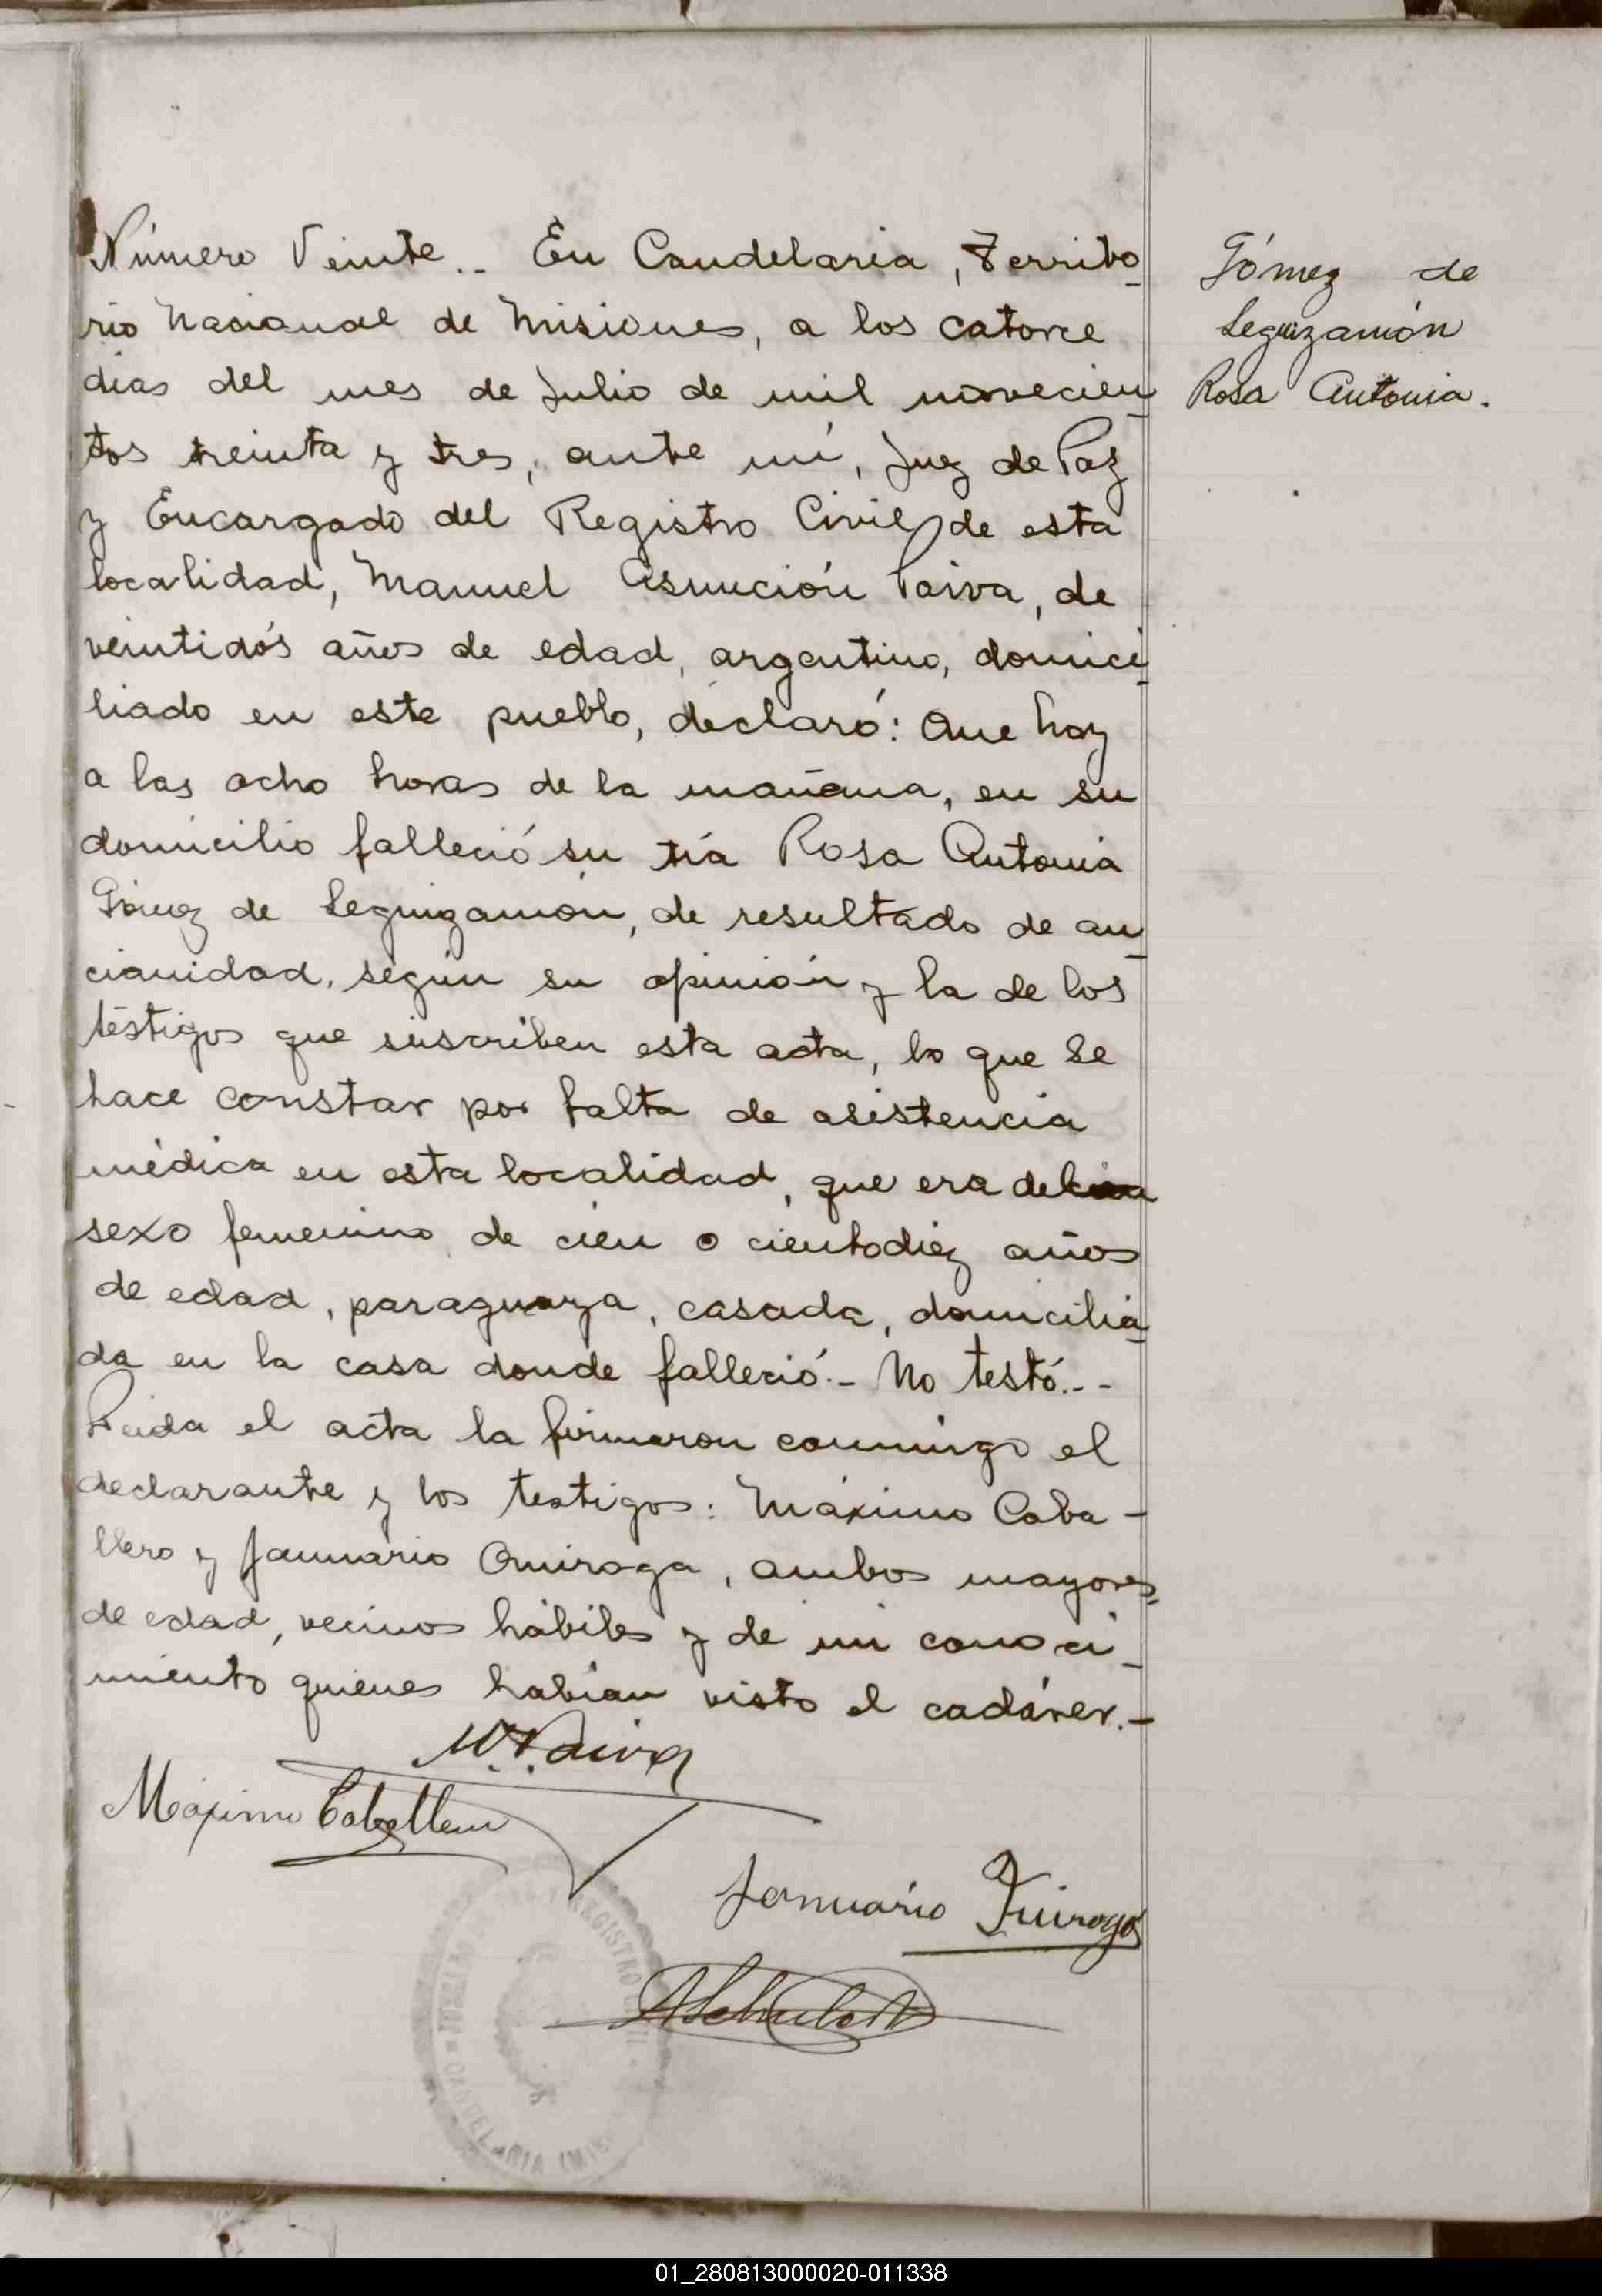 Número Veinte.. En Candelaria, Territo-
rio Nacional de Misiones, a los catorce
dias del mes de Julio de mil novecien-
tos treinta y tres, ante mí, Juez de Paz
y Encargado del Registro Civil de esta
localidad, Manuel Asunción Paiva, de
veintidós años de edad, argentino, domici-
liado en este pueblo, declaró: Que hoy
a las ocho horas de la mañana, en su
domicilio falleció su tía Rosa Antonia
Gómez de Leguizamón, de resultado de an-
cianidad, según su opinión y la de los
testigos que suscriben esta acta, lo que se
hace constar por falta de asistencia
médica en esta localidad, que era del
sexo femenino de cien o cientodiez años
de edad, paraguaya, casada, domicilia-
da en la casa donde falleció.- No testó.--
Leida el acta la firmaron conmigo el
declarante y los testigos: Máximo Caba-
llero y Januario Quiroga, ambos mayores
de edad, vecinos hábiles y de mi conoci-
miento quienes habían visto el cadáver.-
Gómez de
Leguizamón
Rosa Antonia.
M. A. Paiva
Máximo Caballero
Januario Quiroga
REGISTRO CIVIL
CANDELARIA
01_280813000020-011338